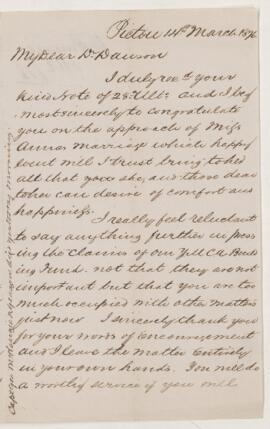 Pictou 14th March 1876
My Dear Dr Dawson
I duly recd your
kind Note of 28th Ult. and I beg
most sincerely to congratulate
you on the approach of Miss
Annas Marriage which happy
event will I trust bring to her
all that you she, and those dear
to her can desire of comfort and
happiness.
I really feel reluctant
to say anything further in press
ing the Claims of our YMCA Build
ing Fund. not that they are not
important but that you are too
much occupied with other matters
just now I sincerely thank you
for your words of Encouragement
and I leave the matter Entirely
in your own hands. You will do
a worthy service if you will
Captn McKenzie life yesterday morning